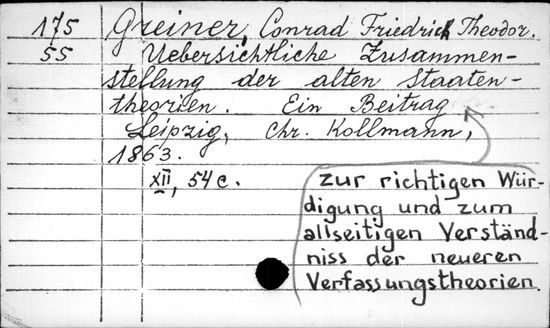 175 Greiner, Conrad Friedrich Theodor.
55 Uebersichtliche Zusammen-
stellung der alten Staaten-
theorien. Ein Beitrag
Leipzig, Chr. Kollmann,
1863.
XII, 54 c.
zur richtigen Wür-
digung und zum
allseitigen Verständ-
niss der neueren
Verfassungstheorien.